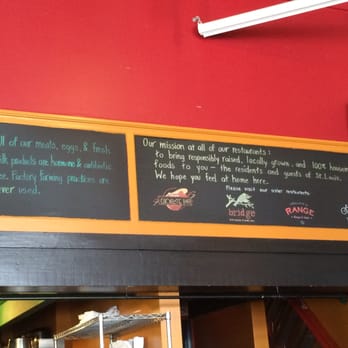 ll of our meats, eggs, & fresh
ilk products are hormone & antibiotic
ee. Factory farming practices are
ever used.
Our mission at all of our restaurants:
to bring responsibly raised, locally grown, and 100% housem
foods to you — the residents and guests of St. Louis.
We hope you feel at home here.
Please visit our sister restaurants
bridge
RANGE